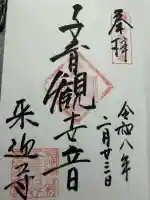 奉拝
令和八年
二月廿三日
子育観世音
来迎寺